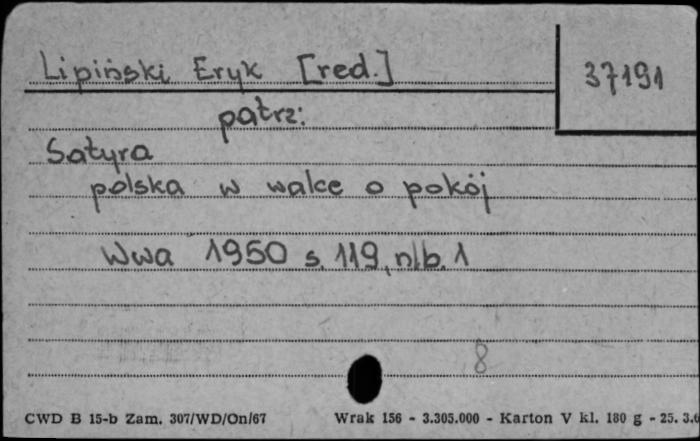 Lipiński Eryk [red.]
37191
patrz:
Satyra
polska w walce o pokój
Wwa 1950 s. 119, nlb. 1
8
CWD B 15-b Zam. 307/WD/On/67 Wrak 156 - 3.305.000 - Karton V kl. 180 g - 25. 3.6